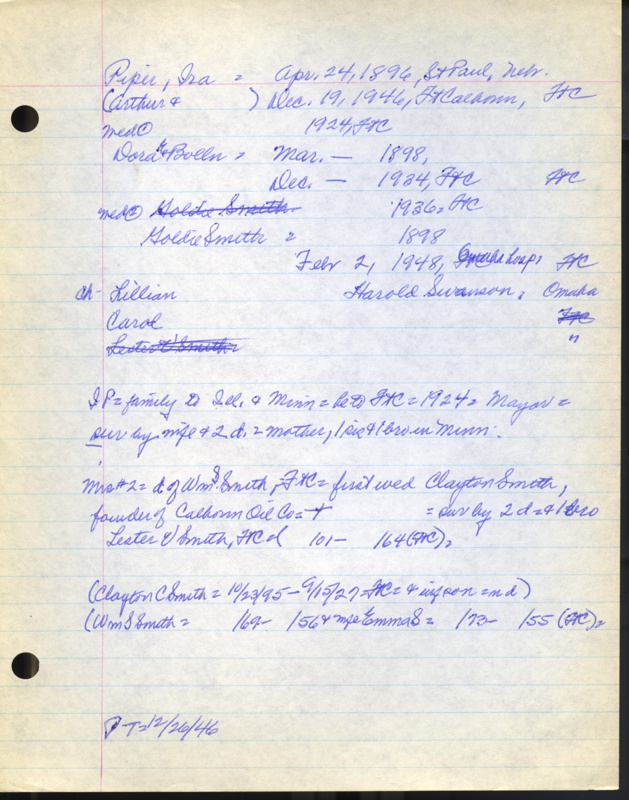 Piper, Ira = Apr. 24, 1896, St Paul, Nebr.
(Arthur & ) Dec. 19, 1946, Ft Calhoun, FtC
med① 1924, FtC
Dora E Bolln = Mar. — 1898,
Dec. — 1934, FtC FtC
med② Goldie Smith 1936, FtC
Goldie Smith = 1898
Febr 2, 1948, Omaha hosp, FtC
ch - Lillian Harold Swanson, Omaha
Carol FtC
Lester V Smith "
IP = family to & Minn = to FtC = 1924 = Mayor =
sur by wife & 2 d. = mother, 1 sis & 1 bro in Minn.
Mrs #2 = d of Wm S Smith, FtC = first wed Clayton Smith,
founder of Calhoun Oil Co = + = sur by 2 d = & 1 bro
Lester V Smith, FtC 101- 164 (FtC) =
(Clayton C Smith = 10/23/95 - 9/15/27 = FtC = & = )
(Wm S Smith = 169- 156 & wife Emma S = 173- 155 (FtC) =
P-T = 12/26/46